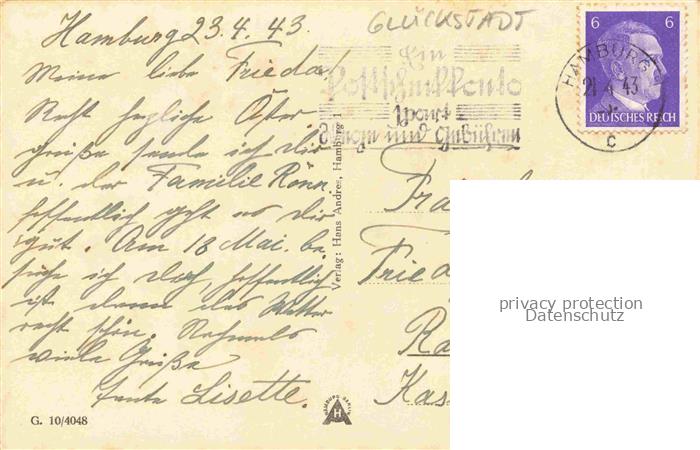 Hamburg 23.4.43.
GLÜCKSTADT
Meine liebe Frieda!
Recht herzliche Oster
grüße sende ich dir
u. der Familie Rönn.
hoffentlich geht es dir
gut. Am 18 Mai. be,
suche ich dich, hoffentlich
ist dann das Wetter
recht schön. Nochmals
viele Grüße
Tante Lisette.
G. 10/4048
Verlag: Hans Andres, Hamburg 1
Ein
Postscheckkonto
spart
Wege und Gebühren
HAMBURG
21.4.43
C
6 6
DEUTSCHES REICH
Fra
Fried
Ra
Kas
privacy protection
Datenschutz